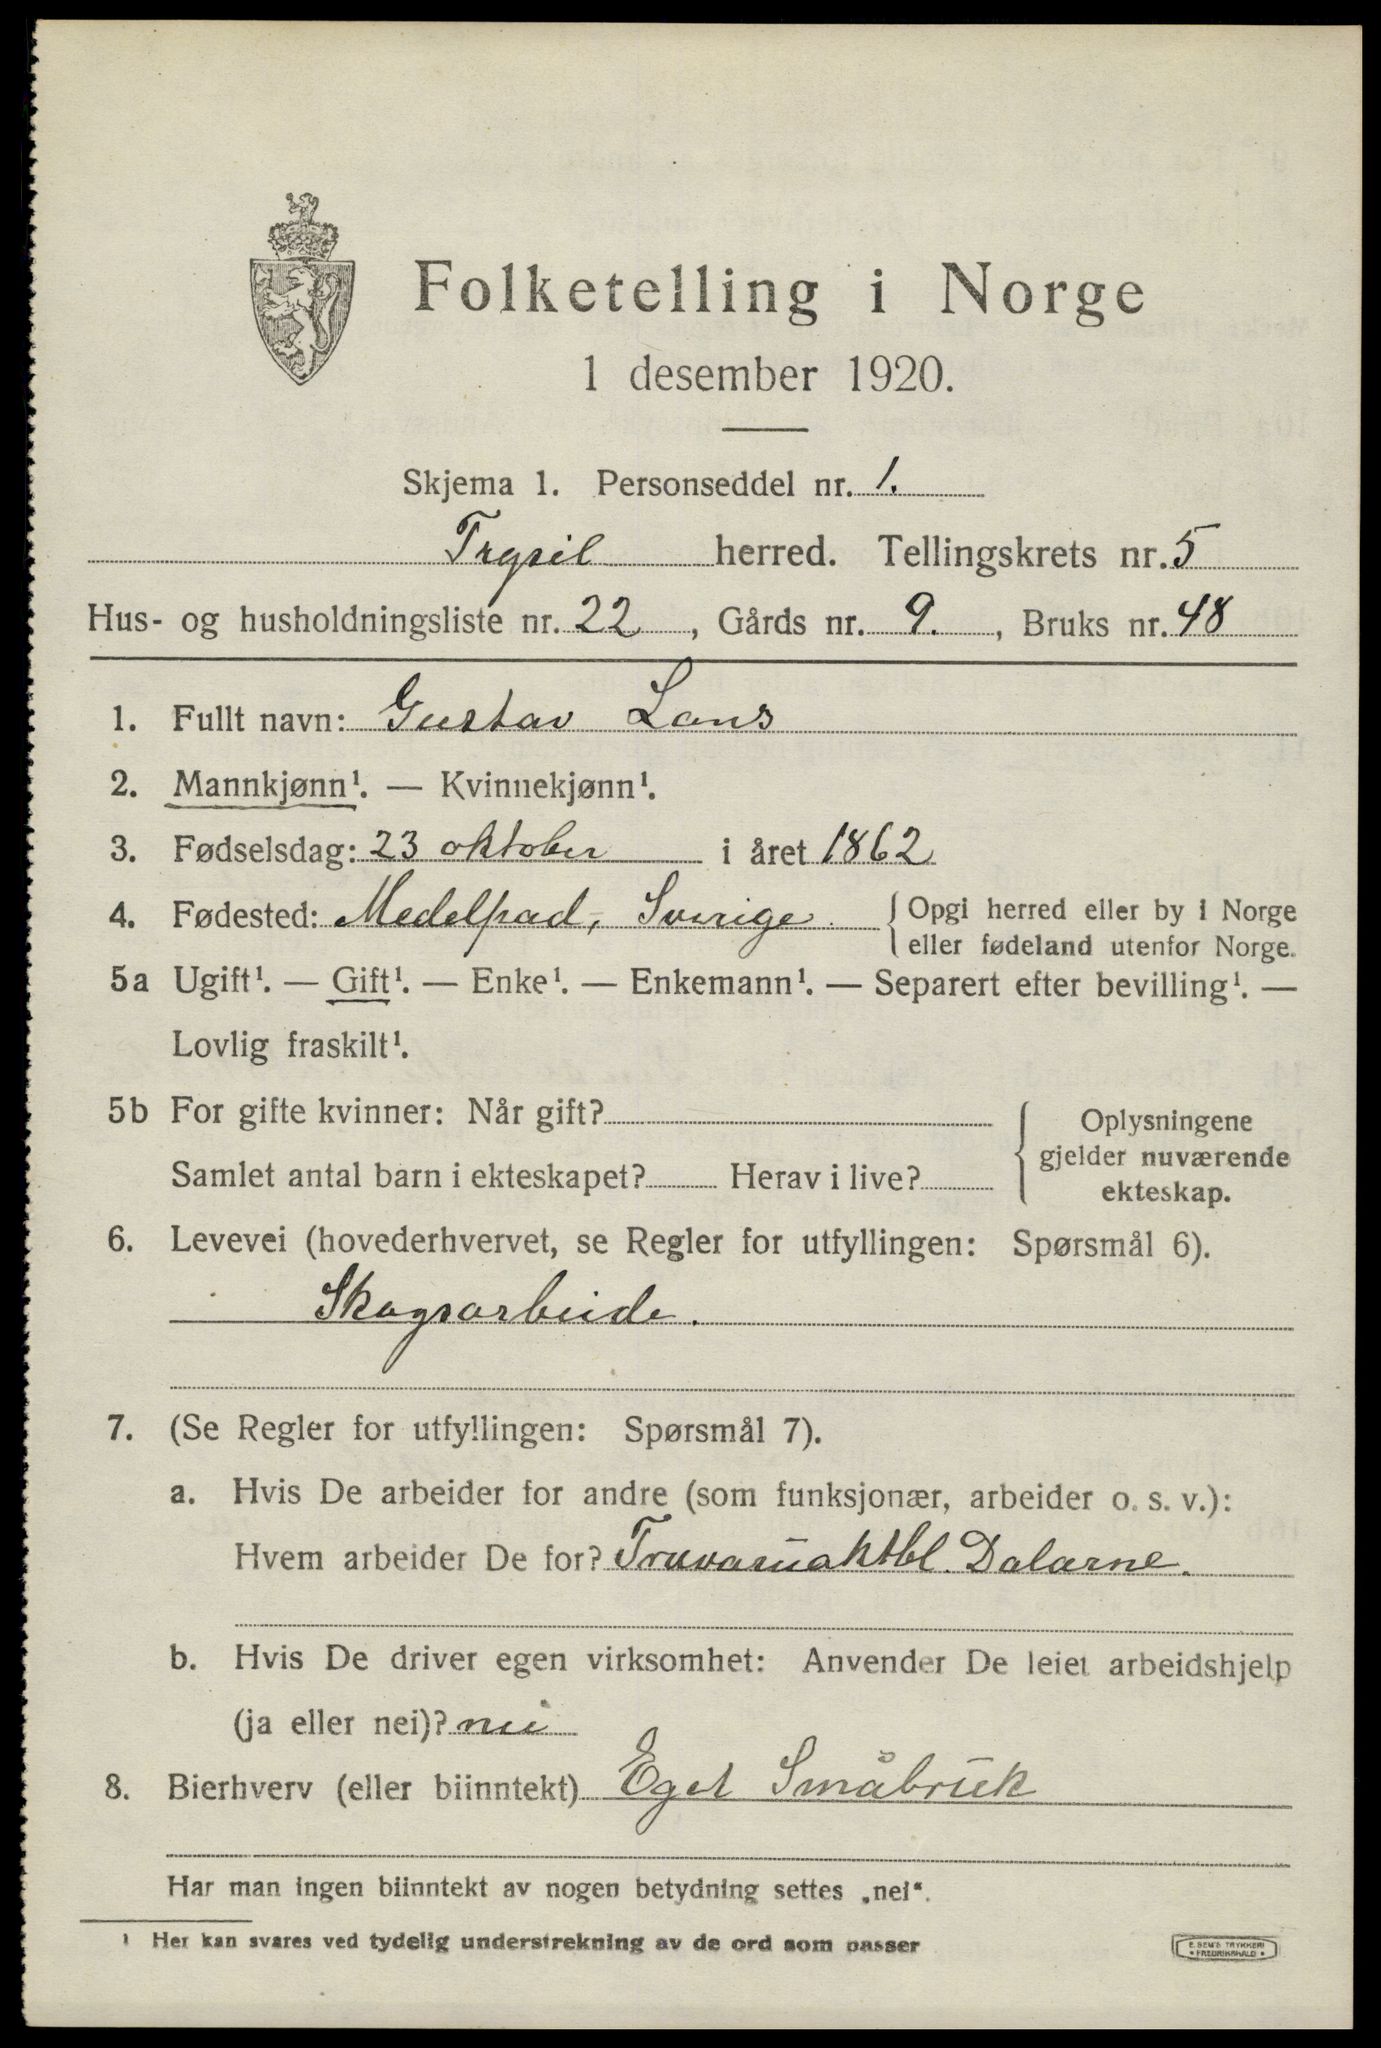 Folketelling i Norge
1 desember 1920.
Skjema 1. Personseddel nr. 1.
Trysil herred. Tellingskrets nr. 5
Hus- og husholdningsliste nr. 22, Gårds nr. 9., Bruks nr. 48
1. Fullt navn: Gustav Lans
2. Mannkjønn¹. — Kvinnekjønn¹.
3. Fødselsdag: 23 oktober i året 1862
4. Fødested: Medelpad, Sverige. {Opgi herred eller by i Norge
eller fødeland utenfor Norge.
5a Ugift¹. — Gift¹. — Enke¹. — Enkemann¹. — Separert efter bevilling¹. —
Lovlig fraskilt¹.
5b For gifte kvinner: Når gift?
Samlet antal barn i ekteskapet? Herav i live?
Oplysningene
gjelder nuværende
ekteskap.
6. Levevei (hovederhvervet, se Regler for utfyllingen: Spørsmål 6).
Skogsarbeide.
7. (Se Regler for utfyllingen: Spørsmål 7).
a. Hvis De arbeider for andre (som funksjonær, arbeider o. s. v.):
Hvem arbeider De for? Dalarne.
b. Hvis De driver egen virksomhet: Anvender De leiet arbeidshjelp
(ja eller nei)? nei
8. Bierhverv (eller biinntekt) Eget Småbruk
Har man ingen biinntekt av nogen betydning settes „nei“.
¹ Her kan svares ved tydelig understrekning av de ord som passer
E. SEM'S TRYKKERI
• FREDRIKSHALD •